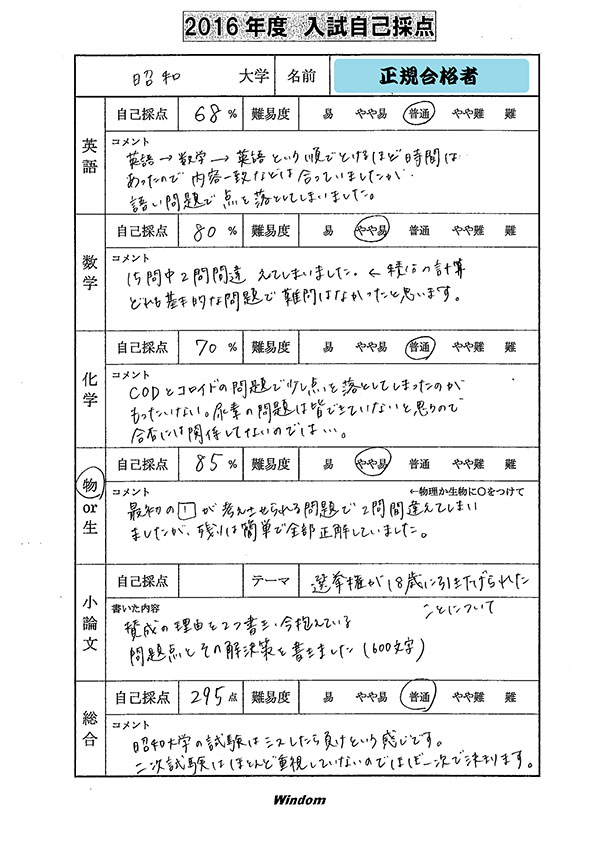 2016年度 入試自己採点
昭和 大学 名前 正規合格者
英語
自己採点 68 % 難易度 易 やや易 普通 やや難 難
コメント
英語→数学→英語という順でとけるほど時間は
あったので内容一致などは合っていましたが、
語い問題で点を落としてしまいました。
数学
自己採点 80 % 難易度 易 やや易 普通 やや難 難
コメント
15問中2問間違えてしまいました。← 積分の計算
どれも基本的な問題で難問はなかったと思います。
化学
自己採点 70 % 難易度 易 やや易 普通 やや難 難
コメント
CODとコロイドの問題で少し点を落としてしまったのが
もったいない。尿素の問題は皆できていないと思うので
合否には関係してないのでは…。
物or生
自己採点 85 % 難易度 易 やや易 普通 やや難 難
コメント ←物理か生物に○をつけて
最初の1が考えさせられる問題で2問間違えてしまい
ましたが、残りは簡単で全部正解していました。
小論文
自己採点 テーマ 選挙権が18歳に引き上げられた
ことについて
書いた内容
賛成の理由を2つ書き、今抱えている
問題点とその解決策を書きました(600文字)
総合
自己採点 295 点 難易度 易 やや易 普通 やや難 難
コメント
昭和大学の試験はミスしたら負けという感じです。
二次試験はほとんど重視していないのでほぼ一次で決まります。
Windom